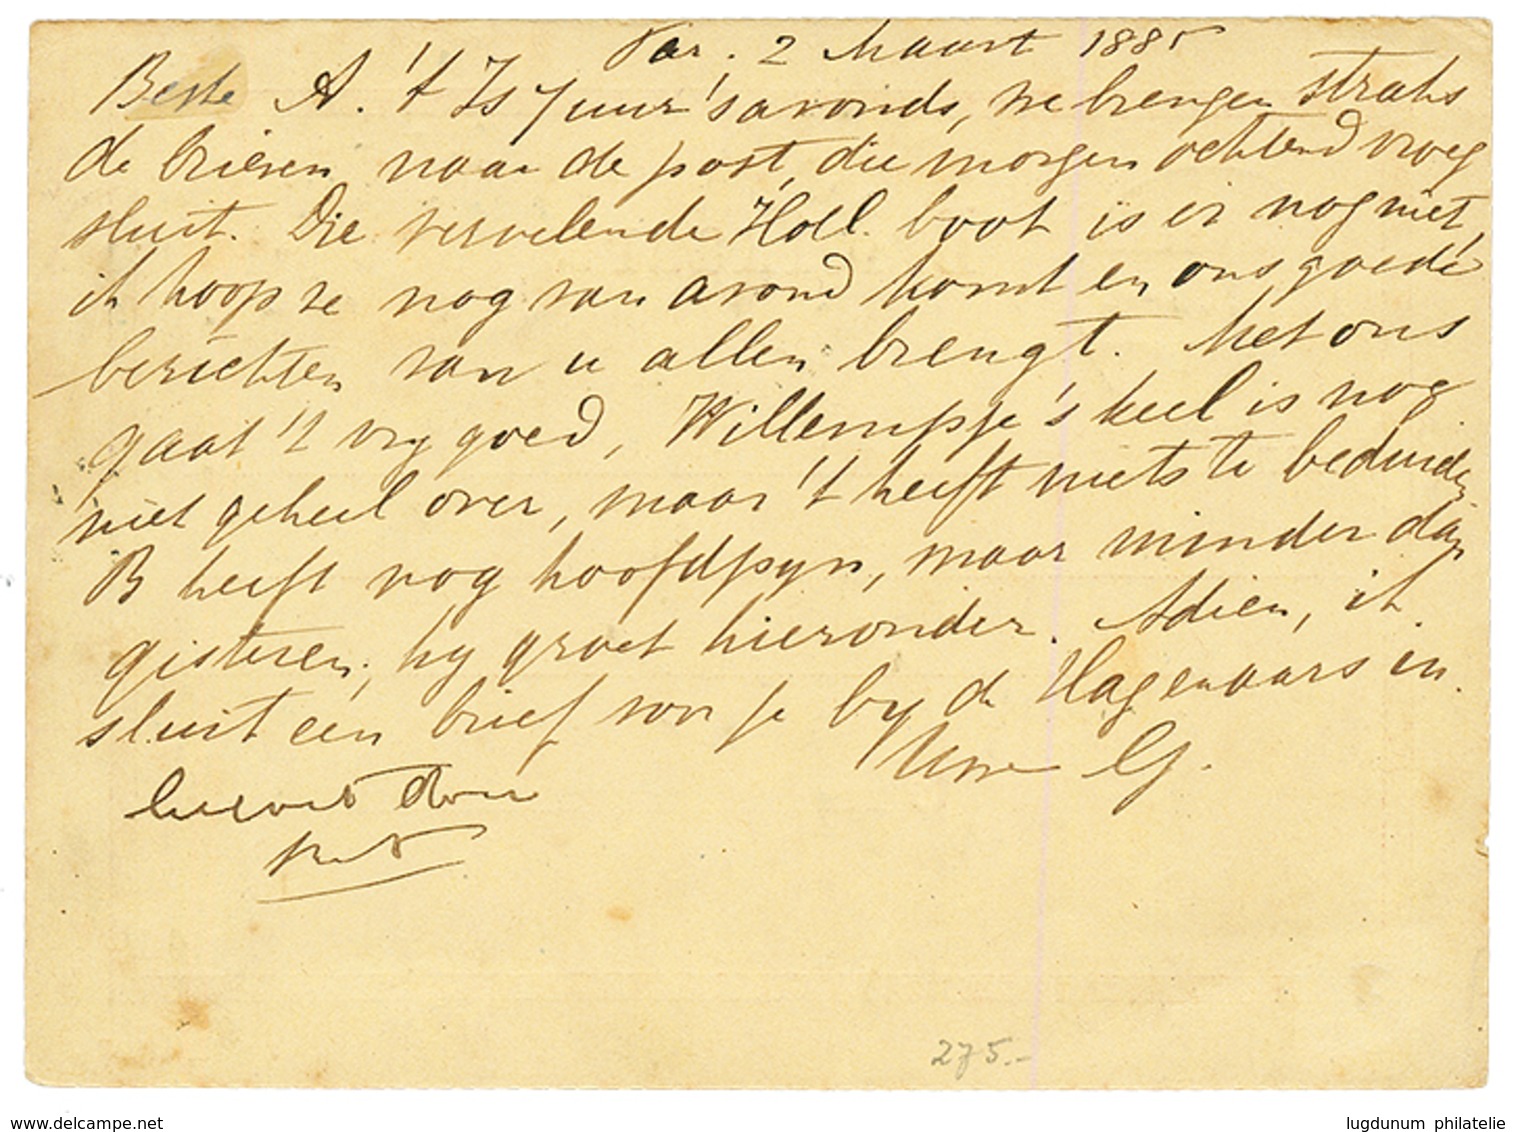 Par. 2 Maart 1885
Beste A. 't Is 7 uur 's avonds, we brengen straks
de brieven naar de post, die morgen ochtend vroeg
sluit. Die vervelende Holl. boot is er nog niet,
ik hoop ze nog van avond komt en ons goede
berichten van u allen brengt. Met ons
gaat 't vry goed, Willempje's keel is nog
niet geheel over, maar 't heeft niets te beduiden.
B heeft nog hoofdpyn, maar minder dan
gisteren, hy groet hieronder. Adieu, ik
sluit een brief voor je by de Hagenaars in.
Uwe G.
door
275.-
www.delcampe.net
lugdunum philatelie